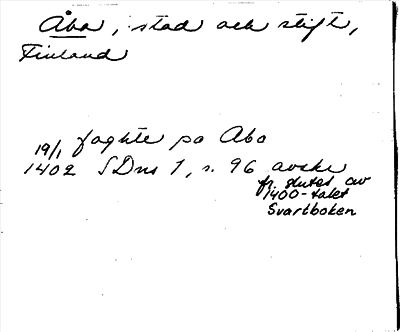 Åbo, stad och stift,
Finland
19/1 foghte pa Abo
1402 SDns 1, s. 96 avskr
fr. slutet av
1400-talet
Svartboken